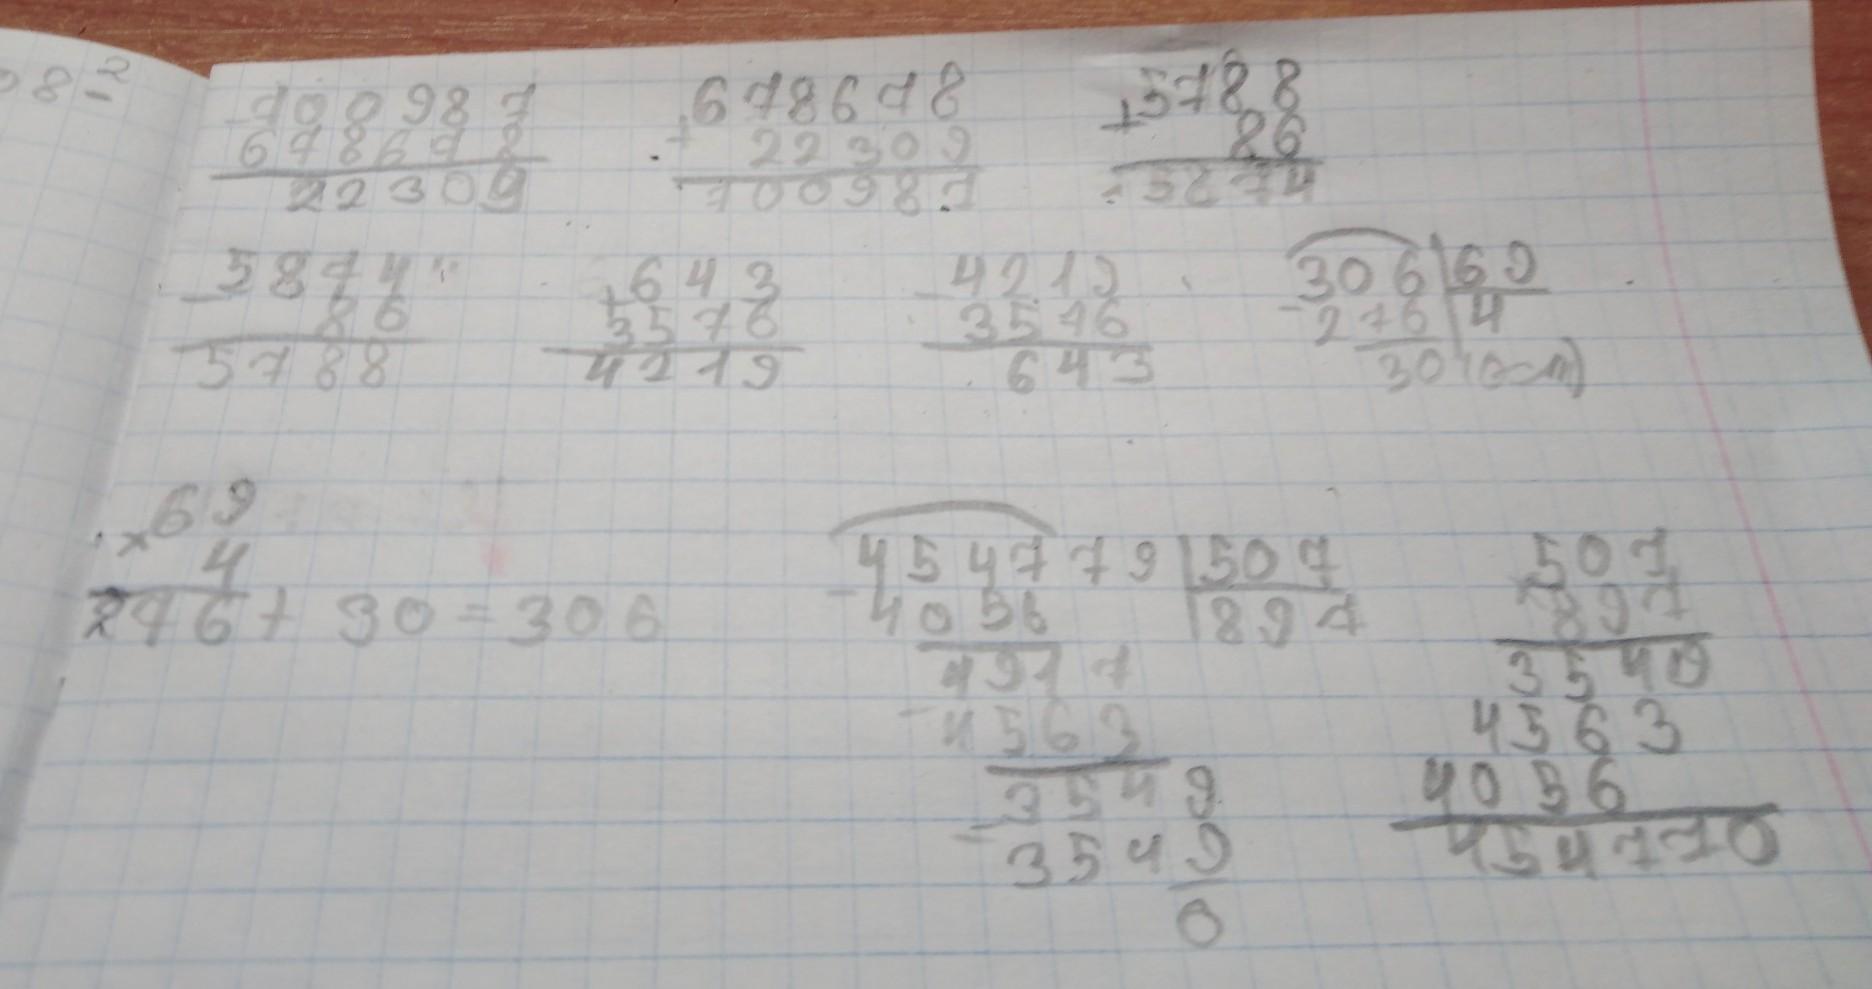 98-2
700987 678678 +5788
678678 + 22309 86
22309 700987 5874
5874 +643 -4219 306|69
- 86 3576 3576 -276|4
5788 4219 643 30(ост)
69
× 4
276+30=306
454779|507 507
-4056|897 ×897
4917 3549
-4563 4563
3549 4056
-3549 454779
0